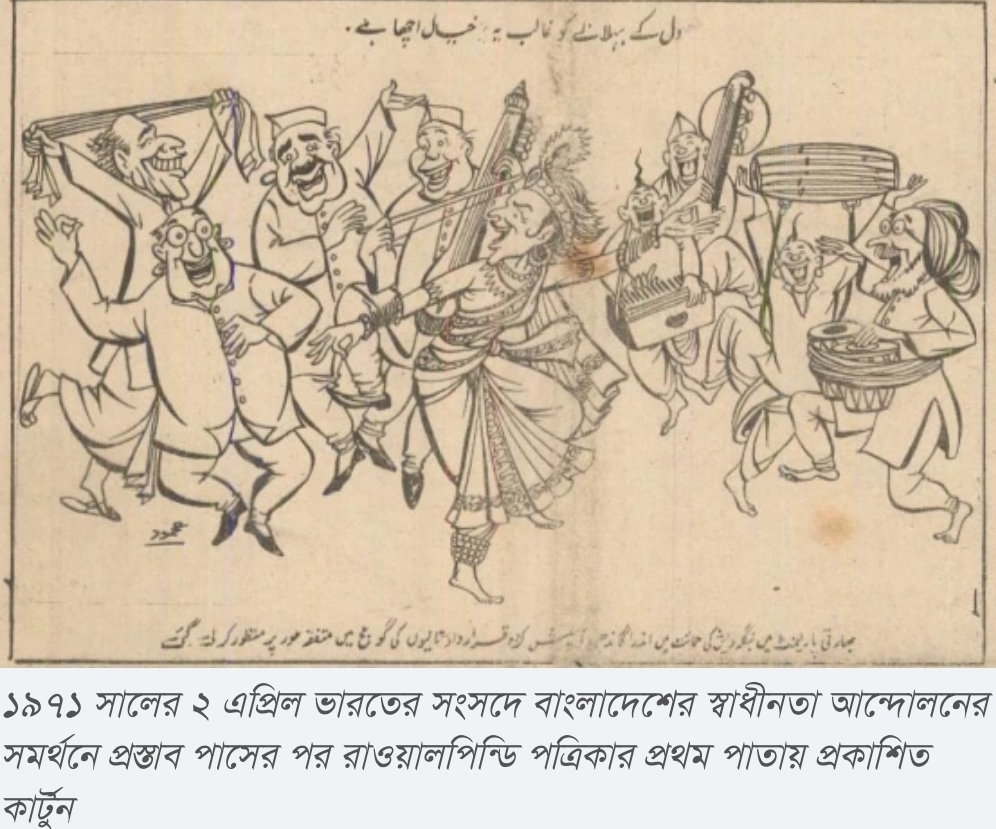 دل کے بہلانے کو غالب یہ خیال اچھا ہے۔
محمود
بھارتی پارلیمنٹ میں بنگلہ دیش کی حمائت میں اندرا گاندھی کی پیش کردہ قرارداد تالیوں کی گونج میں متفقہ طور پر منظور کر لی گئی
১৯৭১ সালের ২ এপ্রিল ভারতের সংসদে বাংলাদেশের স্বাধীনতা আন্দোলনের
সমর্থনে প্রস্তাব পাসের পর রাওয়ালপিন্ডি পত্রিকার প্রথম পাতায় প্রকাশিত
কার্টুন